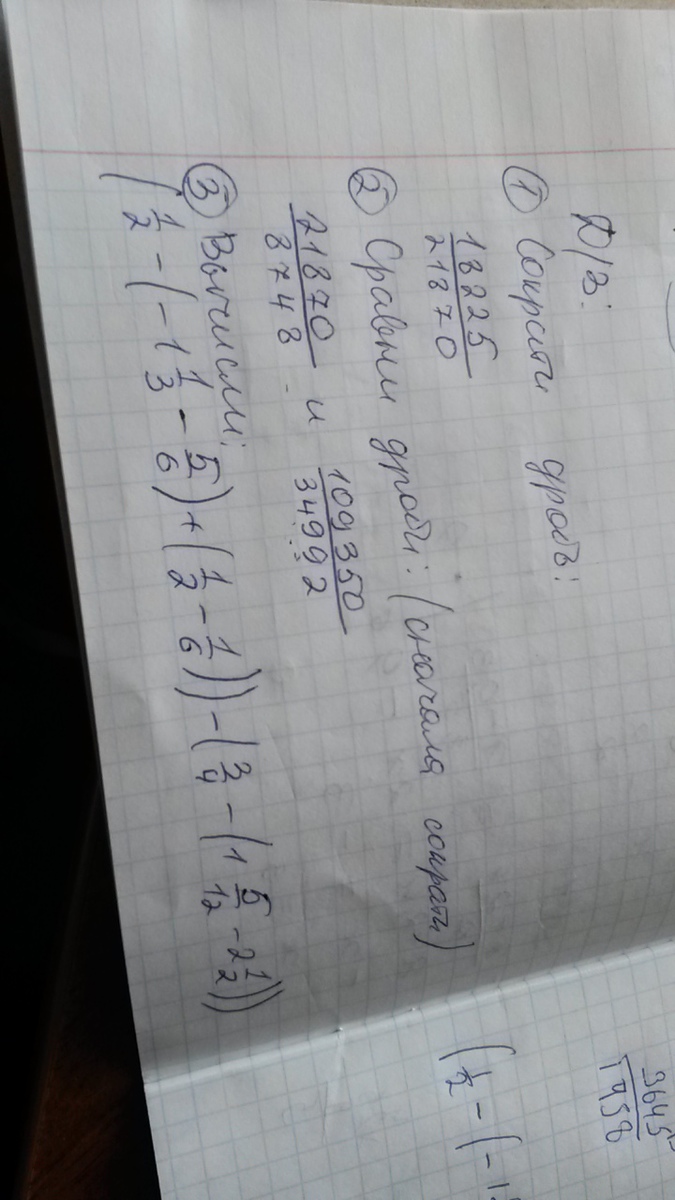 Д/З:
① Сократи дробь:
18225/21870
② Сравни дроби: (сначала сократи)
21870/8748 и 109350/34992
③ Вычисли:
(1/2 - (-1 1/3 - 5/6) + (1/2 - 1/6)) - (3/4 - (1 5/12 - 2 1/2))
3645
1458
(1/2 - (-1